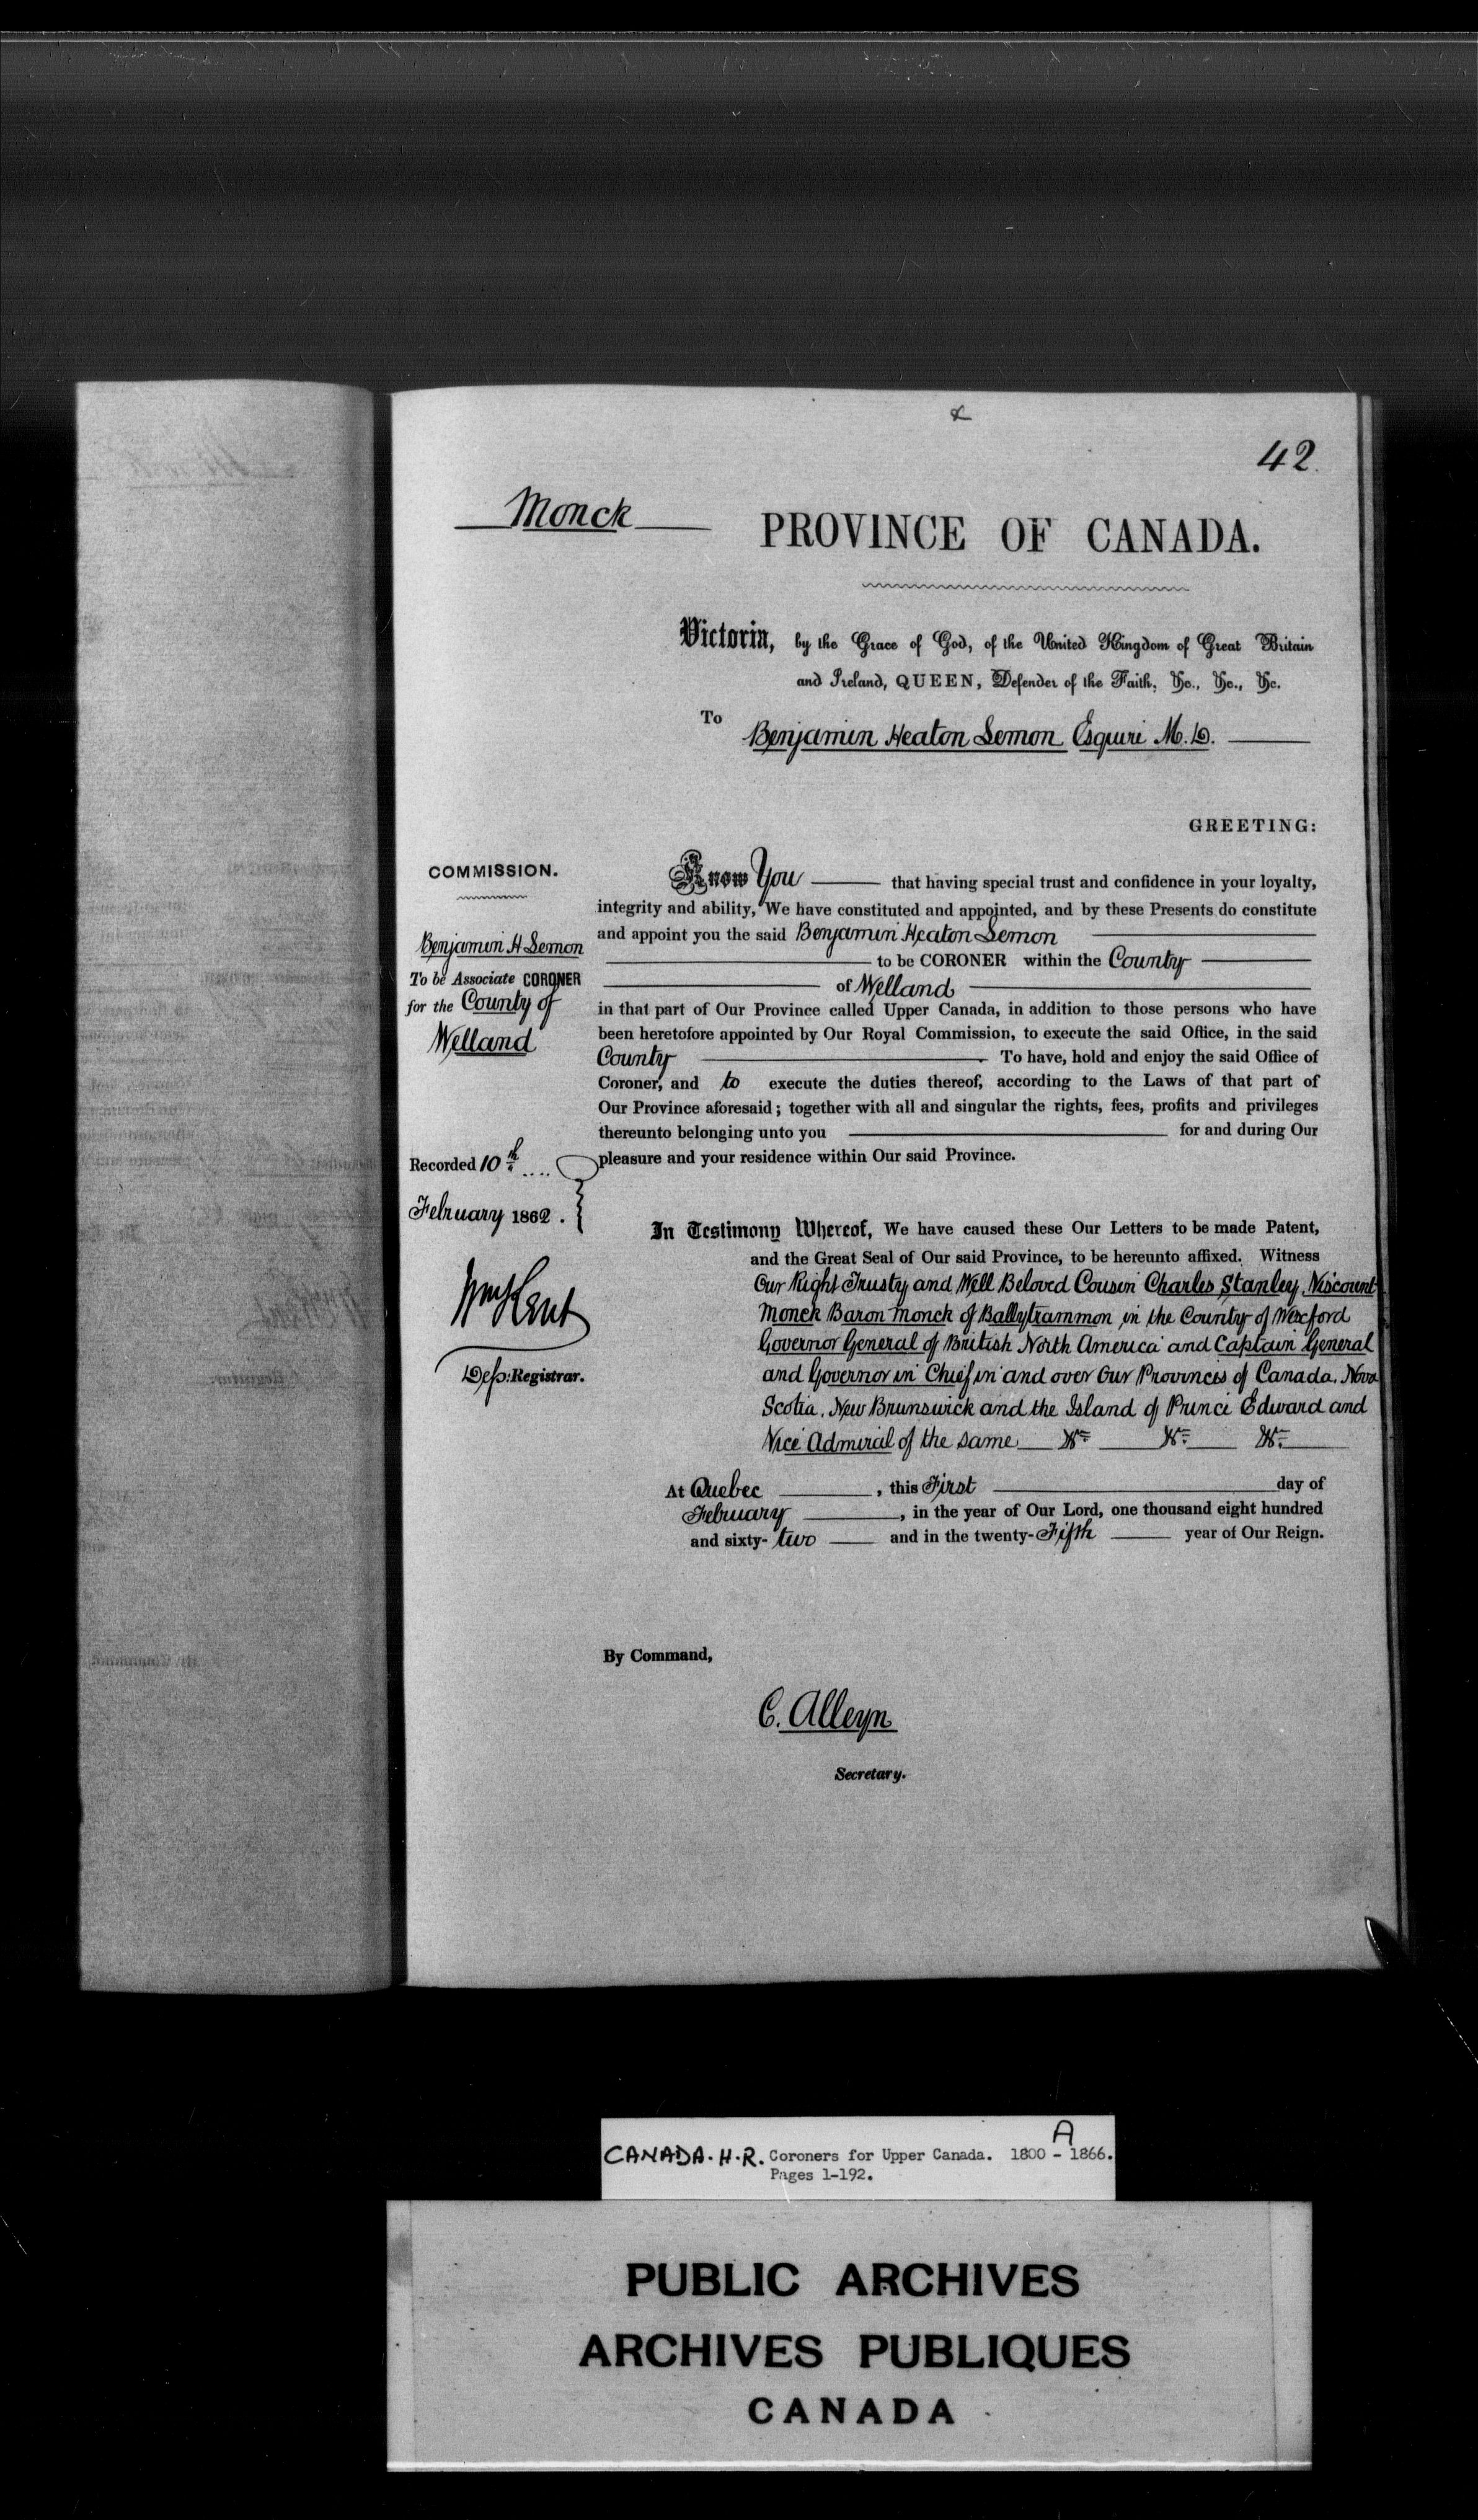 42
Monck
PROVINCE OF CANADA.
Victoria, by the Grace of God, of the United Kingdom of Great Britain
and Ireland, QUEEN, Defender of the Faith, &c., &c., &c.
To
Benjamin Heaton Lemon Esquire M.D.
GREETING:
COMMISSION.
Benjamin H Lemon
To be Associate CORONER
for the County of
Welland
Know You that having special trust and confidence in your loyalty,
integrity and ability, We have constituted and appointed, and by these Presents do constitute
and appoint you the said Benjamin Heaton Lemon
to be CORONER within the County
of Welland
in that part of Our Province called Upper Canada, in addition to those persons who have
been heretofore appointed by Our Royal Commission, to execute the said Office, in the said
County To have, hold and enjoy the said Office of
Coroner, and to execute the duties thereof, according to the Laws of that part of
Our Province aforesaid; together with all and singular the rights, fees, profits and privileges
thereunto belonging unto you for and during Our
pleasure and your residence within Our said Province.
Recorded 10th
February 1862.
Wm Kent
Dep: Registrar.
In Testimony Whereof, We have caused these Our Letters to be made Patent,
and the Great Seal of Our said Province, to be hereunto affixed. Witness
Our Right Trusty and Well Beloved Cousin Charles Stanley, Viscount
Monck Baron Monck of Ballytrammon in the County of Wexford
Governor General of British North America and Captain General
and Governor in Chief in and over Our Provinces of Canada, Nova
Scotia, New Brunswick and the Island of Prince Edward and
Vice Admiral of the same &c &c &c
At Quebec, this First day of
February, in the year of Our Lord, one thousand eight hundred
and sixty-two and in the twenty-Fifth year of Our Reign.
By Command,
C. Alleyn
Secretary.
A
CANADA. H.R. Coroners for Upper Canada. 1800 - 1866.
Pages 1-192.
PUBLIC ARCHIVES
ARCHIVES PUBLIQUES
CANADA